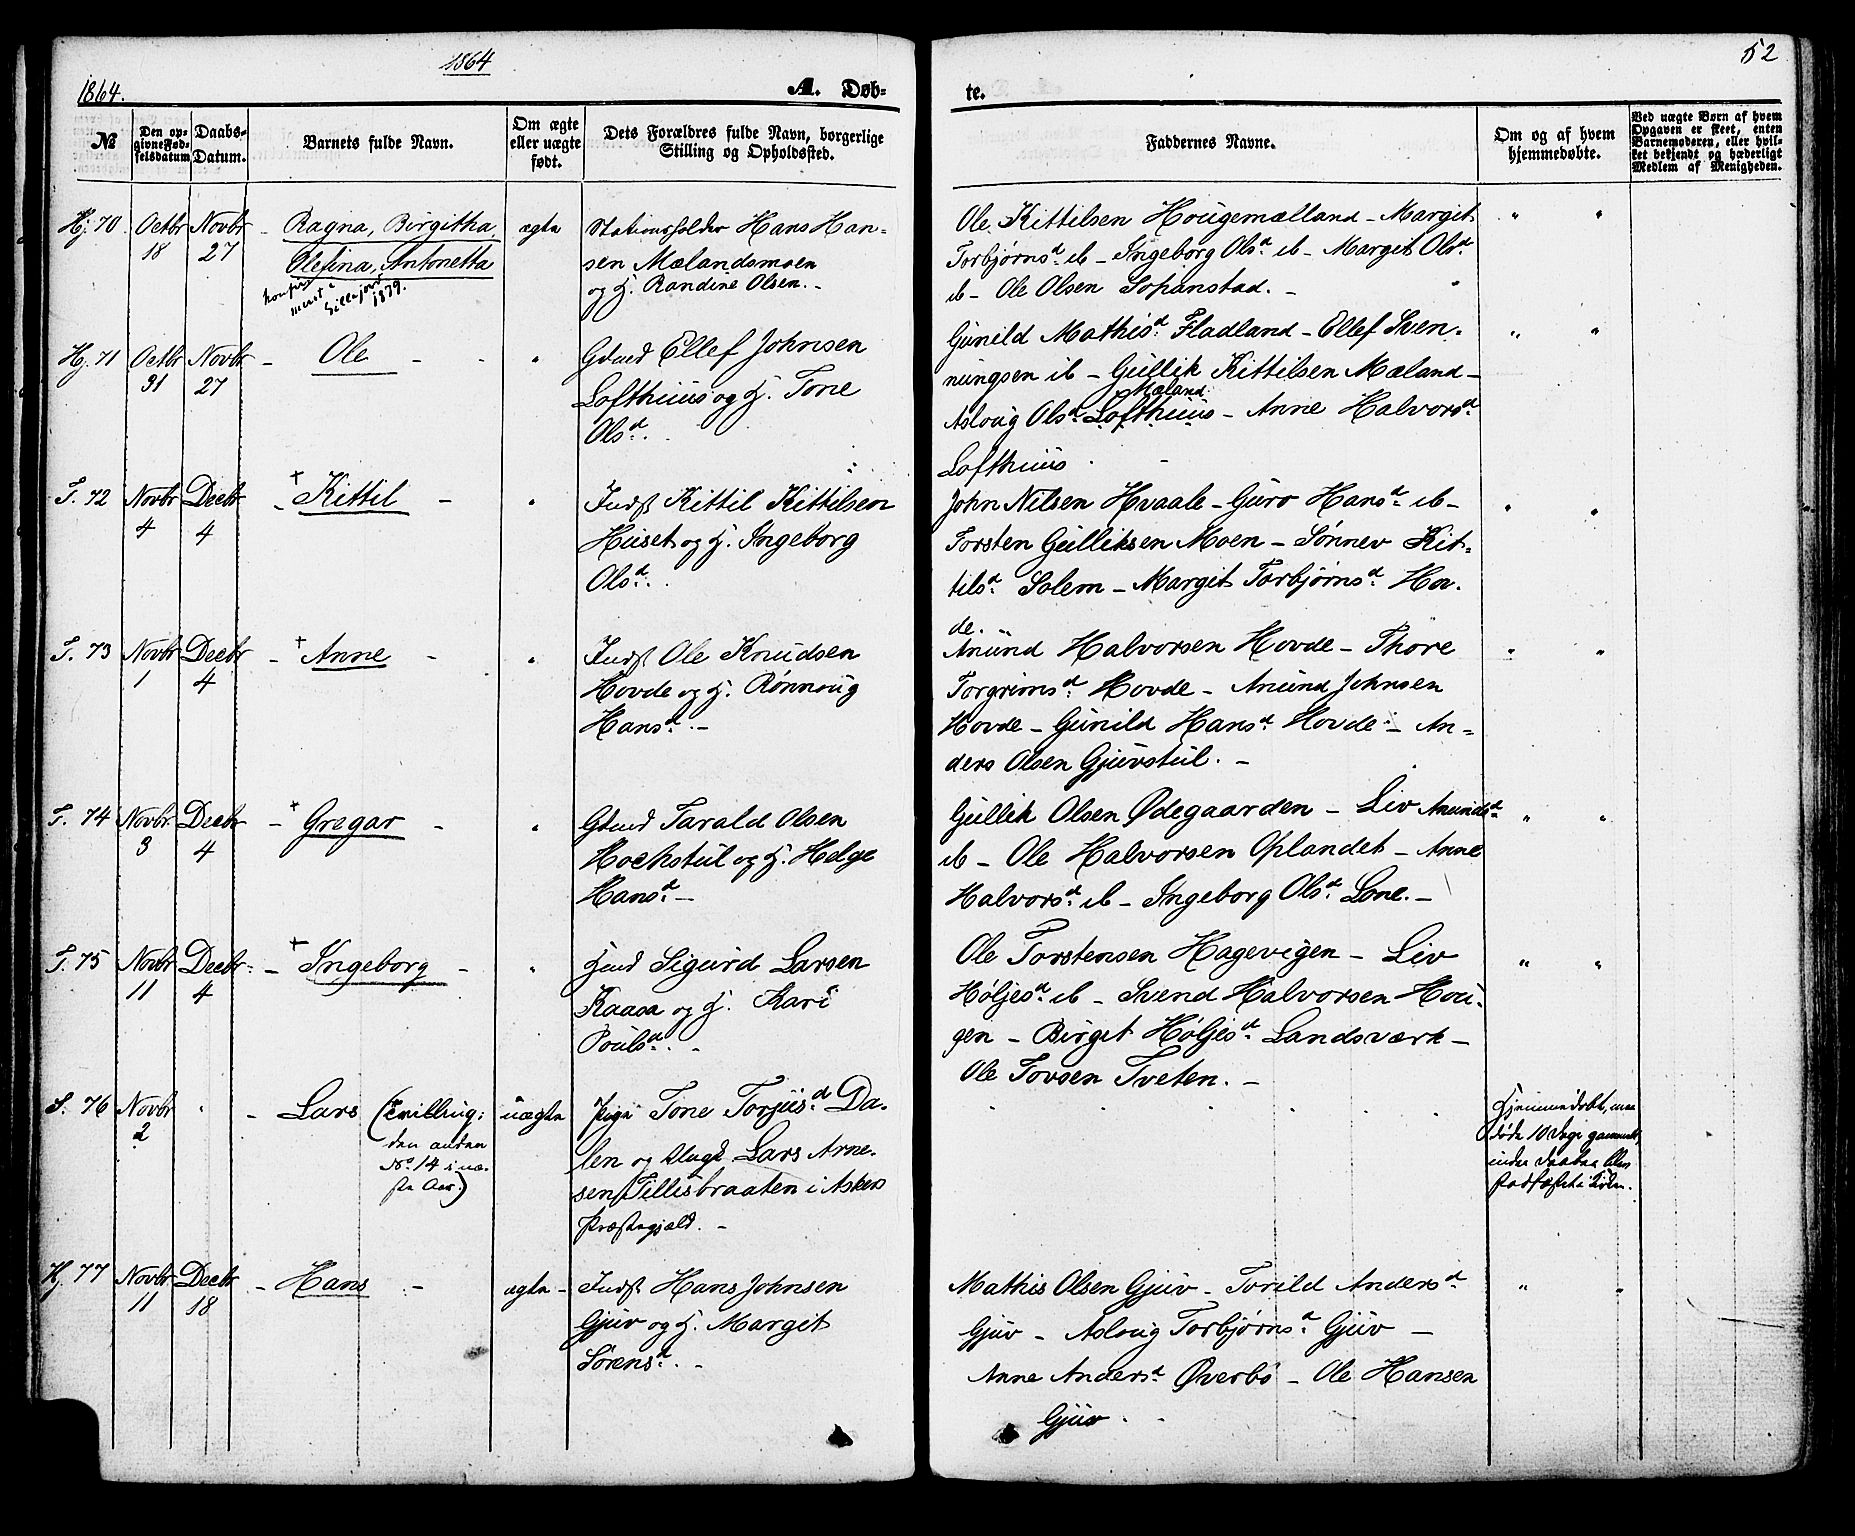 1864
52
1864.
A. Døb-
te.
№
Den op-
givne Fød-
selsdatum
Daabs-
Datum.
Barnets fulde Navn.
Om ægte
eller uægte
født.
Dets Forældres fulde Navn, borgerlige
Stilling og Opholdssted.
Faddernes Navne.
Om og af hvem
hjemmedøbte.
Ved uægte Børn af hvem
Opgaven er skeet, enten
Barnemoderen, eller hvil-
ket bekjendt og hæderligt
Medlem af Menigheden.
Hj. 70
Octbr
18
Novbr
27
Ragna, Birgitha,
Olefina, Antonetta
1879.
ægte
Stationsholder Hans Han-
sen Mælandsmoen
og H. Randine Olsen. -
Ole Kittilsen Hougemælland - Margit
Torbjørnsd. ib - Ingeborg Olsd. ib - Margit Olsd.
ib - Ole Olsen Sopanstad. -
" "
Hj. 71
Octbr
31
Novbr
27
Ole
"
Gdmd Ellef Johnsen
Lofthuus og H. Tone
Olsd.
Gunild Mathisd. Fladland - Ellef Sven-
nungsen ib - Gullik Kittilsen Mæland -
Mæland
Asloug Olsd. Lofthuus - Anne Halvorsd.
Lofthuus
" "
T. 72
Novbr
4
Decbr
4
+ Kittil -
"
Indst Kittil Kittilsen
Huset og H. Ingeborg
Olsd.
John Nilsen Hvaale - Guro Hansd. ib -
Torsten Gulliksen Moen - Sønnev Kit-
tilsd. Solem - Margit Torbjørnsd. Hov-
de.
" "
T. 73
Novbr
1
Decbr
4
+ Anne -
"
Indst Ole Knudsen
Hovde og H. Rønnoug
Hansd. -
Anund Halvorsen Hovde - Thore
Torgrimsd. Hovde - Anund Johnsen
Hovde - Gunild Hansd. Hovde - An-
ders Olsen Gjuvstul. -
" "
T. 74
Novbr
3
Decbr
4
+ Gregar -
"
Gdmd Tarald Olsen
Hochstul og H. Helge
Hansd. -
Gullik Olsen Ødegaarden - Liv Anundsd.
ib - Ole Halvorsen Oplandet - Anne
Halvorsd. ib - Ingeborg Olsd. Lone. -
" "
T. 75
Novbr
11
Decbr
4
+ Ingeborg -
"
Hmd Sigurd Larsen
Kaasa og H. Kari
Poulsd. -
Ole Torstensen Hagevigen - Liv
Høljesd. ib - Svend Halvorsen Hou-
gen - Birget Høljesd. Landsværk -
Ole Tovsen Tveten. -
" "
S. 76
Novbr
2
"
- Lars (tvilling;
den anden
No 14 i næ-
ste Aar.)
uægte
Pige Tone Torjusd. Da-
len og Ungk Lars Arne-
sen Tillisbraaten i Askers
Præstegjæld. -
Hjemmedøbt, men
døde 10 Dage gammel,
inden Daaben blev
stadfæstet i Kirken.
Hj. 77
Novbr
11
Decbr
18
- Hans -
ægte -
Indst Hans Johnsen
Gjuv og H. Margit
Sørensd. -
Mathis Olsen Gjuv - Torild Andersd.
Gjuv - Asloug Torbjørnsd. Gjuv -
Anne Andersd. Øverbø - Ole Hansen
Gjuv.
" "